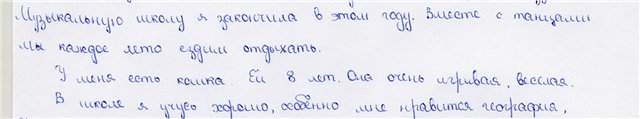 Музыкальную школу я закончила в этом году. Вместе с танцами
мы каждое лето ездим отдыхать.
У меня есть кошка. Ей 8 лет. Она очень игривая, веселая.
В школе я учусь хорошо, особенно мне нравится география,